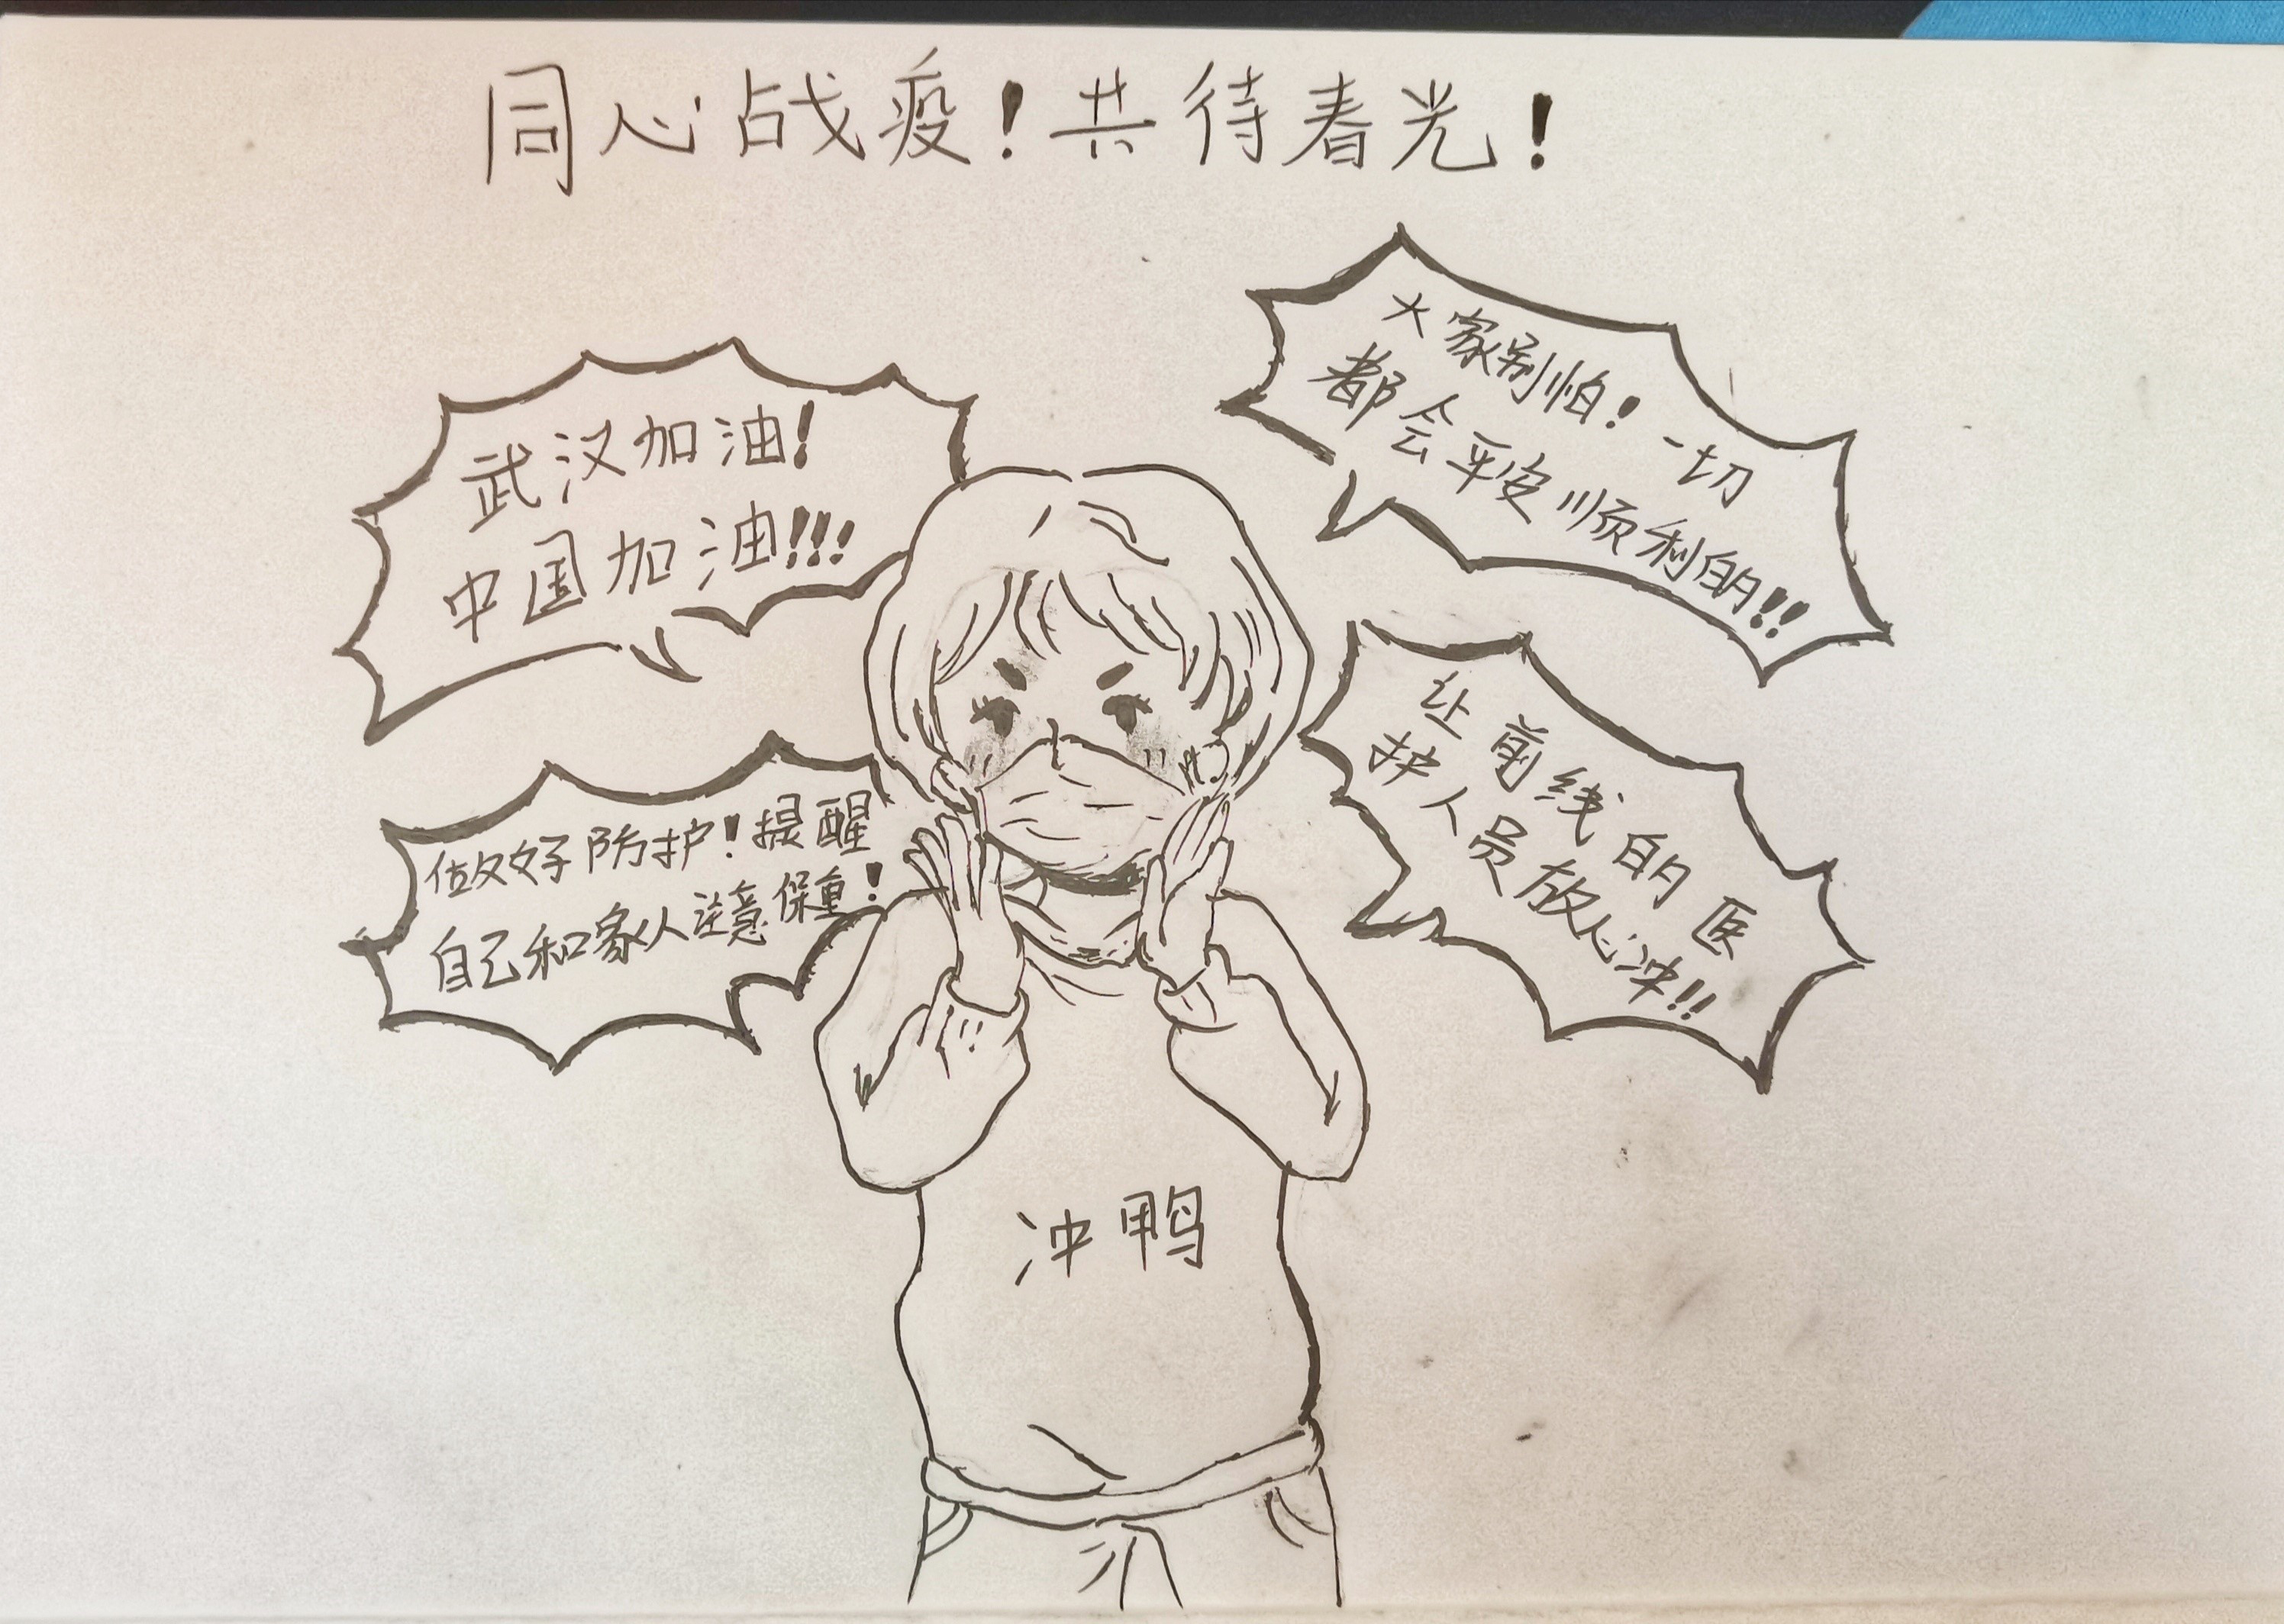 同心战疫！共待春光！
武汉加油！
中国加油！！！
大家别怕！一切
都会平安顺利的！！
做好防护！提醒
自己和家人注意保重！
让前线的医
护人员放心冲！！
冲鸭